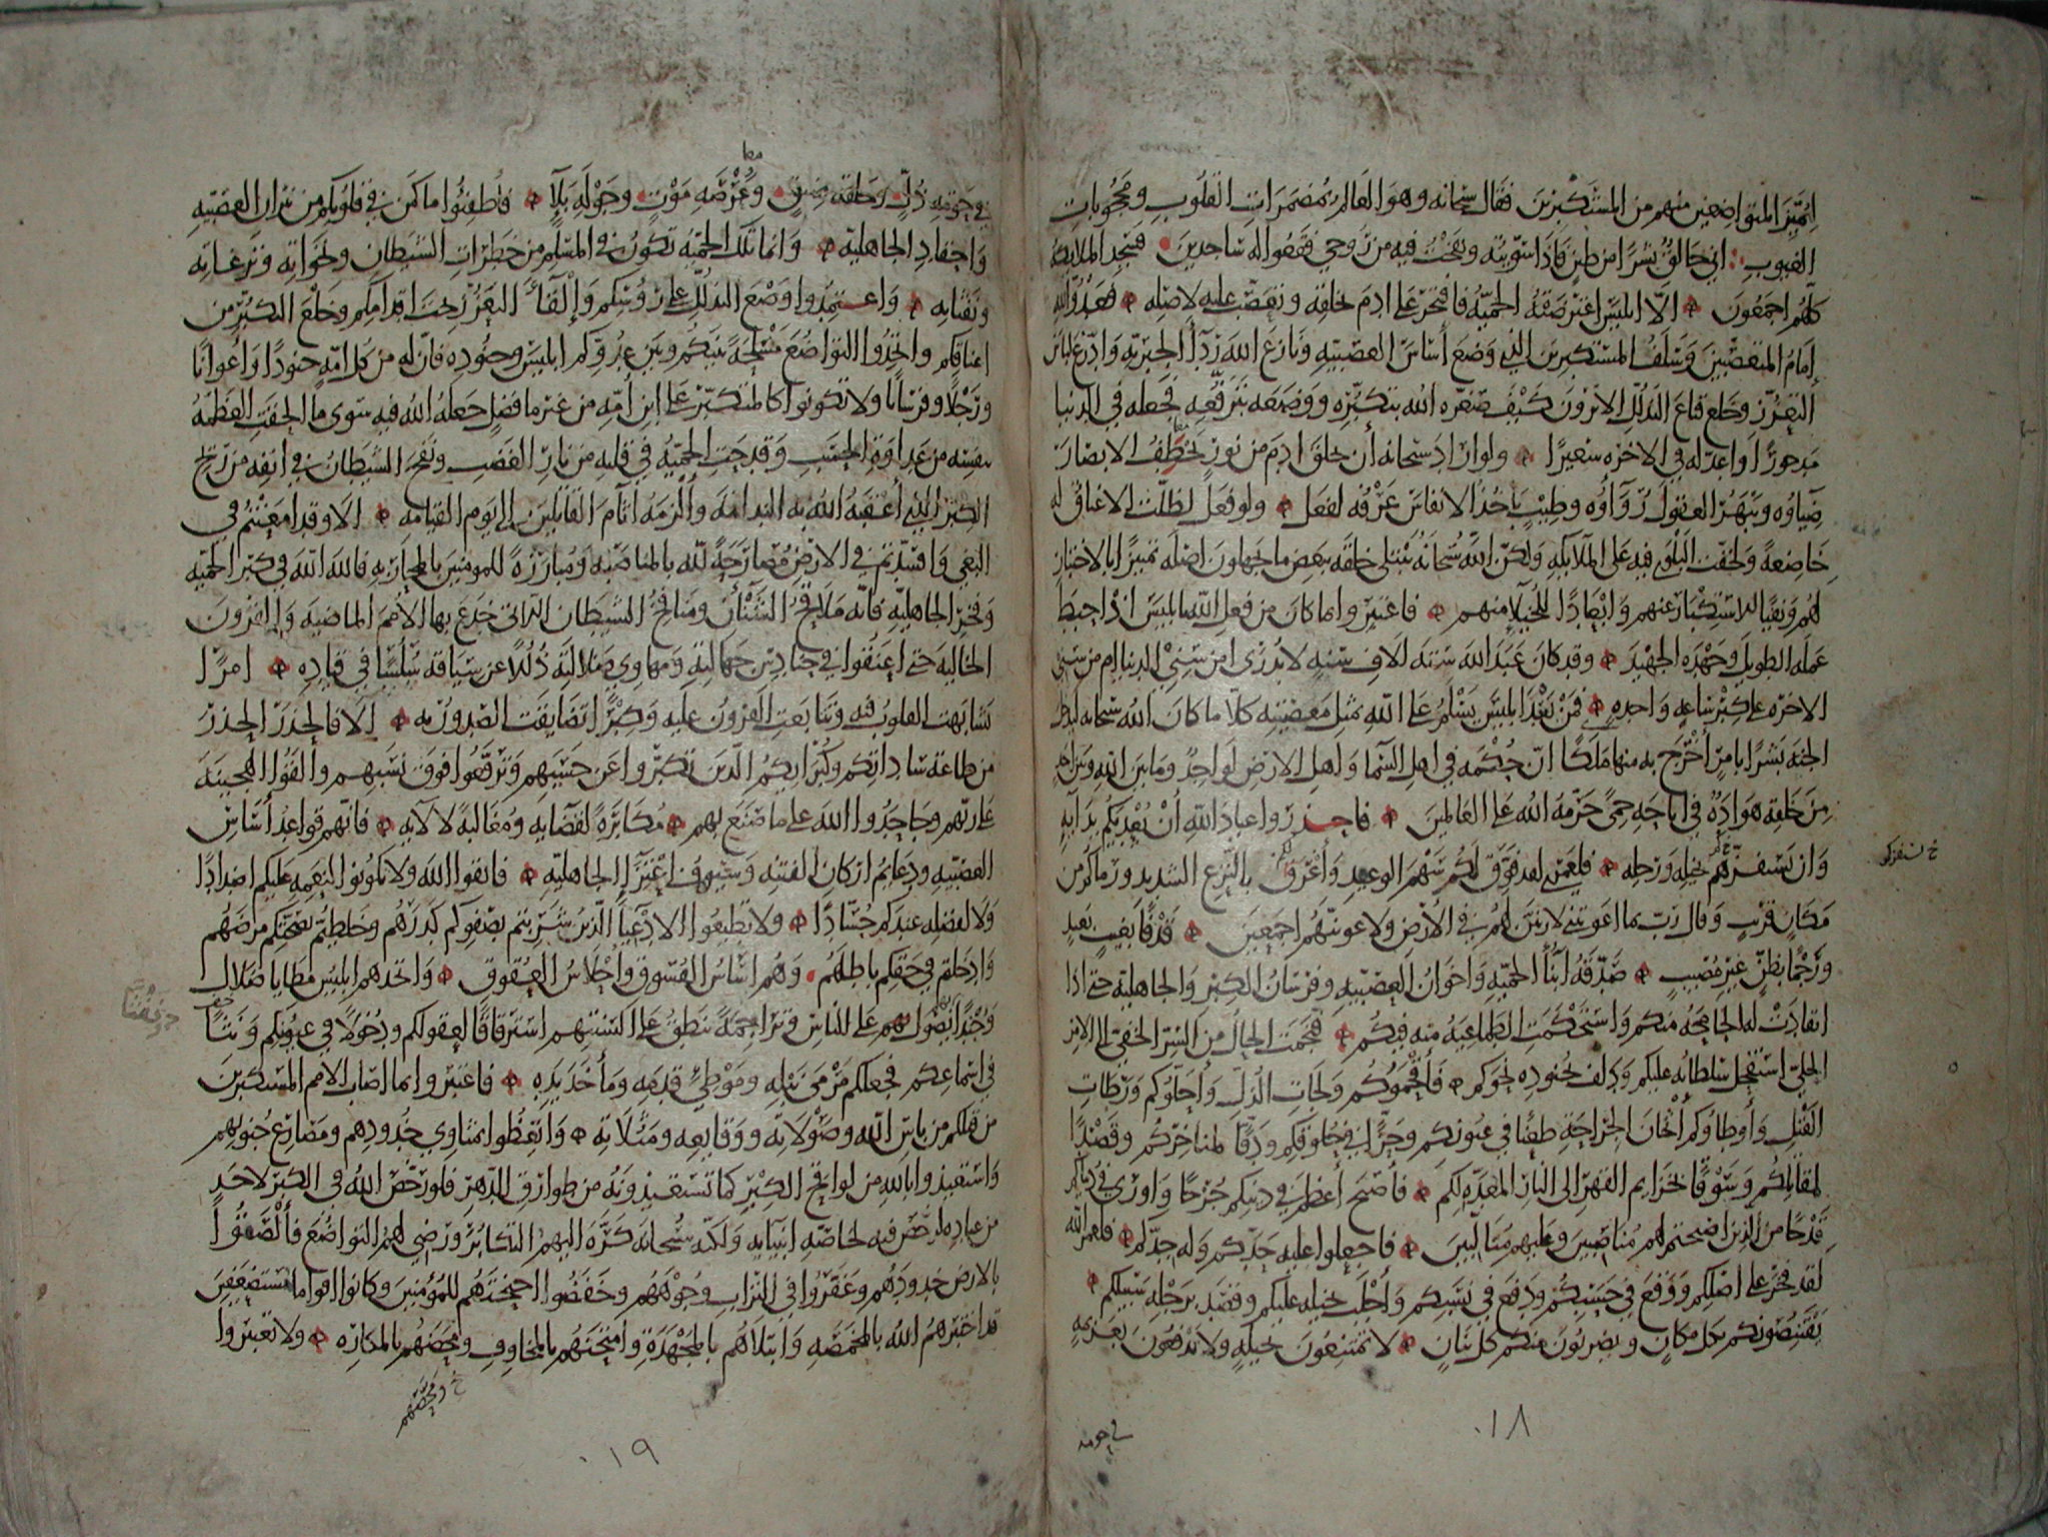 ليميز المتواضعين منهم من المستكبرين فقال سبحانه وهو العالم بمضمرات القلوب ومحجوبات
الغيوب اني خالق بشرا من طين فاذا سويته ونفخت فيه من روحي فقعوا له ساجدين فسجد الملائكة
كلهم اجمعون الا ابليس اعترضته الحمية فافتخر على ادم بخلقه وتعصب عليه لاصله فعدو الله
إمام المتعصبين وسلف المستكبرين الذي وضع أساس العصبية ونازع الله رداء الجبرية وادرع لباس
التعزز وخلع قناع التذلل الا ترون كيف صغره الله بتكبره ووضعه بترفعه فجعله في الدنيا
مدحورا واعد له في الاخره سعيرا ولو اراد سبحانه أن يخلق ادم من نور يخطف الابصار
ضياؤه ويبهر العقول رواؤه وطيب ياخذ الانفاس عرفه لفعل ولو فعل لظلت الاعناق له
خاضعة ولخفت البلوى فيه على الملائكة ولكن الله سبحانه يبتلي خلقه ببعض ما يجهلون اصله تمييزا بالاختبار
لهم ونفيا للاستكبار عنهم وابعادا للخيلا منهم فاعتبروا بما كان من فعل الله بابليس اذ احبط
عمله الطويل وجهده الجهيد وقد كان عبد الله ستة الاف سنة لا يدرى امن سني الدنيا ام من سني
الاخره على كبر ساعة واحده فمن بعد ابليس يسلم على الله بمثل معصيته كلا ما كان الله سبحانه ليدخل
الجنة بشرا بامر أخرج به منها ملكا ان حكمه في اهل السما واهل الارض لواحد وما بين الله وبين احد
من خلقه هوادة في اباحة حمى حرمه الله على العالمين فاحذروا عباد الله أن يعديكم بدائه
وان يستفزهم بخيله ورجله فلعمري لقد فوق لكم سهم الوعيد وأغرق بالنزع الشديد ورماكم من
خ يستفزكم
مكان قريب وقال رب بما اغويتني لازينن لهم في الأرض ولاغوينهم اجمعين قذفا بغيب بعيد
ورجما بظن غير مصيب صدقه أبناء الحمية واخوان العصبية وفرسان الكبر والجاهلية حتى اذا
انقادت له الجامحة منكم واستحكمت الطماعية منه فيكم فنجمت الحال من السر الخفي الى الامر
الجلي استفحل سلطانه عليكم ودلف بجنوده نحوكم فأقحموكم ولجات الذل وأحلوكم ورطات
القتل وأوطأوكم أثخان الجراحة طعنا في عيونكم وحزا في حلوقكم ودقا لمناخركم وقصدا
لمقاتلكم وسوقا بخزايم القهر الى النار المعدة لكم فأصبح أعظم في دينكم جرحا واورى في دنياكم
قدحا من الذين اصبحتم لهم مناصبين وعليهم متألبين فاجعلوا عليه حدكم وله جدكم فلعمر الله
لقد فخر على اصلكم ووقع في حسبكم ودفع في نسبكم وأجلب بخيله عليكم وقصد برجله سبيلكم
يقتنصونكم بكل مكان ويضربون منكم كل بنان لا تمتنعون بحيلة ولا تدفعون بعزيمة
في حومة
١٨
في حومة ذل وحلقة ضيق وعرصة موت وجولة بلاء فأطفئوا ما كمن في قلوبكم من نيران العصبية
معا
واحقاد الجاهلية وانما تلك الحمية تكون في المسلم من خطرات الشيطان ونخواته ونزغاته
ونفثاته واعتمدوا وضع التذلل على رؤسكم وإلقاء التعزز تحت اقدامكم وخلع التكبر من
اعناقكم واتخذوا التواضع مسلحة بينكم وبين عدوكم ابليس وجنوده فان له من كل امة جنودا وأعوانا
ورجلا وفرسانا ولا تكونوا كالمتكبر على ابن أمه من غير ما فضل جعله الله فيه سوى ما الحقت العظمة
بنفسه من عداوة الحسب وقدحت الحمية في قلبه من نار الغضب ونفخ الشيطان في انفه من ريح
الكبر الذي أعقبه الله به الندامة وألزمه آثام القاتلين إلى يوم القيامة الا وقد امعنتم في
البغي وافسدتم في الارض مصارحة لله بالمناصبة ومبارزة للمومنين بالمحاربة فالله الله في كبر الحمية
وفخر الجاهلية فانه ملاقح الشنأن ومنافخ الشيطان التي خدع بها الأمم الماضية والقرون
الخالية حتى اعنقوا في حنادس جهالته ومهاوي ضلالته ذللا عن سياقه سلسا في قياده امرا
تشابهت القلوب فيه وتتابعت القرون عليه وكبرا تضايقت الصدور به الا فالحذر الحذر
من طاعة ساداتكم وكبرائكم الذين تكبروا عن حسبهم وترفعوا فوق نسبهم والقوا الهجينة
على ربهم وجاحدوا الله على ما صنع بهم مكابرة لقضايه ومغالبة لالآيه فانهم قواعد أساس
العصبية ودعايم اركان الفتنة وسيوف اعتزاء الجاهلية فاتقوا الله ولا تكونوا لنعمه عليكم اضدادا
ولا لفضله عندكم حسادا ولا تطيعوا الادعياء الذين شربتم بصفوكم كدرهم وخلطتم بصحتكم مرضهم
وادخلتم في حقكم باطلهم وهم اساس الفسوق وأحلاس العقوق واتخذهم ابليس مطايا ضلال
وجندا بهم يصول على الناس وتراجمة ينطق على السنتهم استراقا لعقولكم ودخولا في عيونكم ونثا
في اسماعكم فجعلكم مرمى نبله وموطئ قدمه ومأخذ يده فاعتبروا بما اصاب الامم المستكبرين
من قبلكم من باس الله وصولاته ووقايعه ومثلاته واتعظوا بمثاوي خدودهم ومصارع جنوبهم
واستعيذوا بالله من لواقح الكبر كما تستعيذونه من طوارق الدهر فلو رخص الله في الكبر لاحد
من عباده لرخص فيه لخاصة انبيايه ولكنه سبحانه كره اليهم التكابر ورضي لهم التواضع فألصقوا
بالارض خدودهم وعفروا في التراب وجوههم وخفضوا اجنحتهم للمؤمنين وكانوا اقواما مستضعفين
قد اختبرهم الله بالمخمصة وابتلاهم بالمجهدة وامتحنهم بالمخاوف ومحصهم بالمكاره ولا تعتبروا
١٩